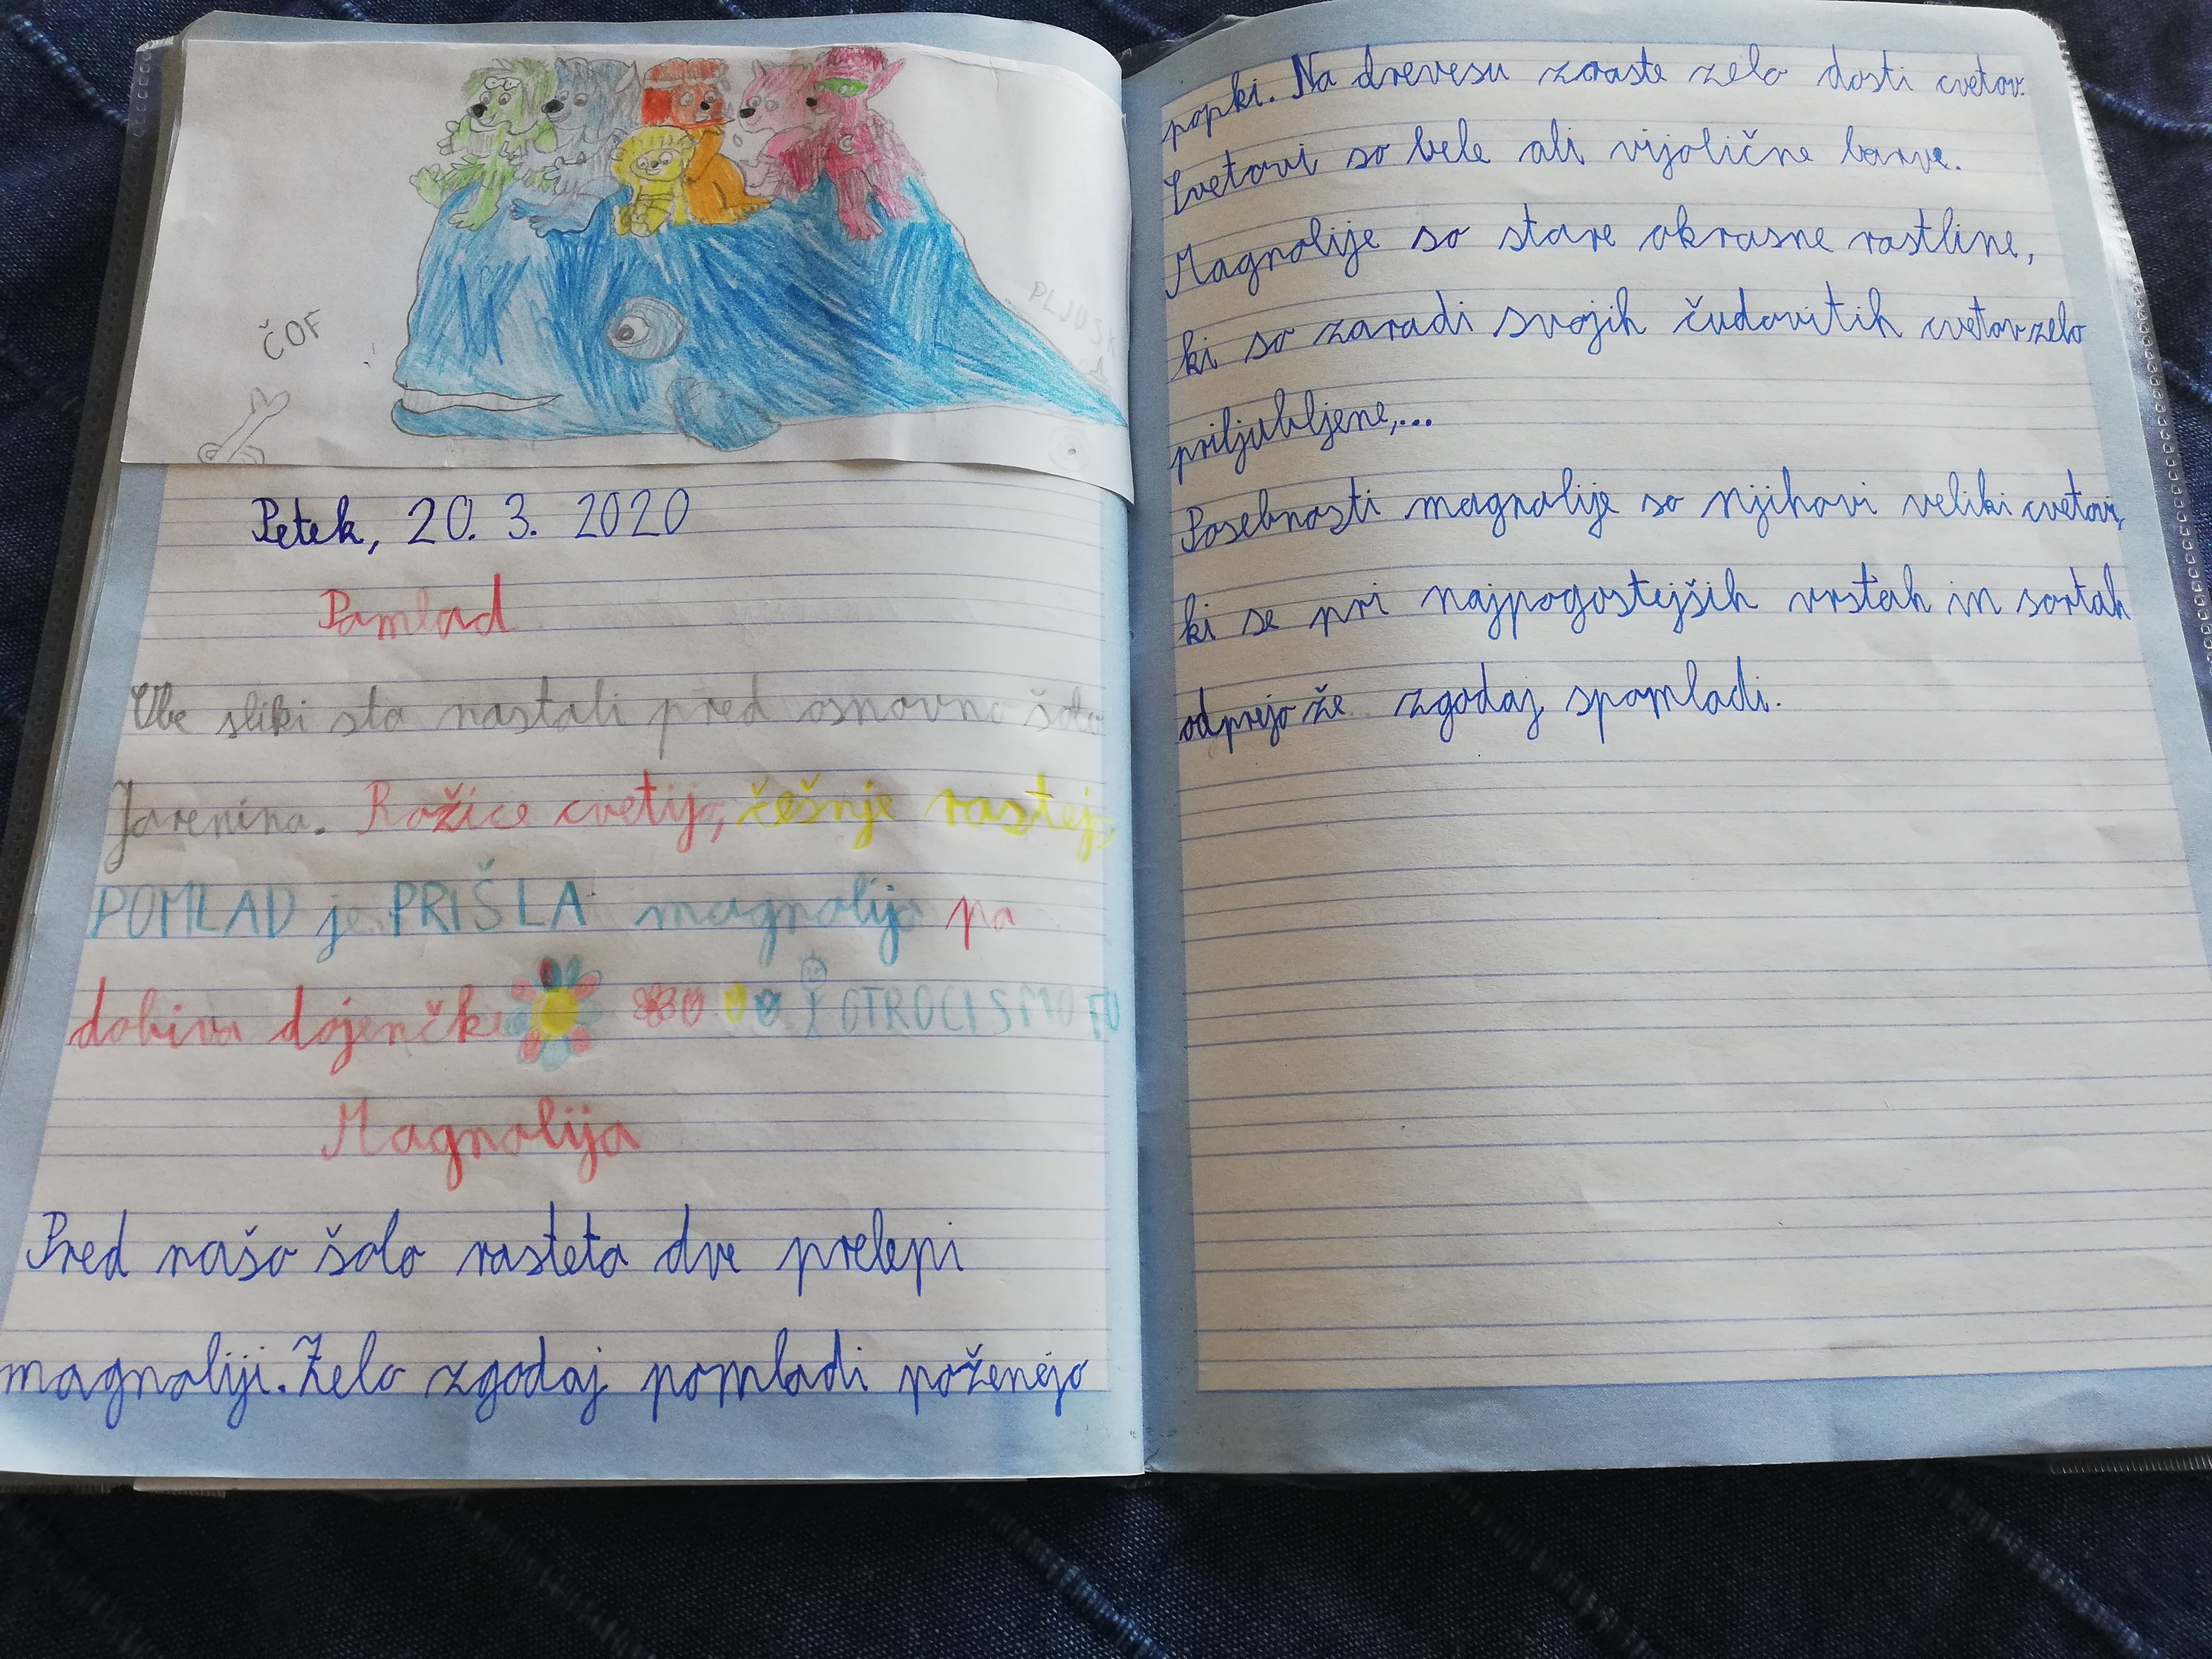 ČOF
PLJUSK
Petek, 20. 3. 2020
Pomlad
Obe sliki sta nastali pred osnovno šolo
Jarenina. Rožice cvetijo, češnje rastejo,
POMLAD je PRIŠLA magnolija pa
dobiva dojenčke OTROCI SMO TU
Magnolija
Pred našo šolo rasteta dve prelepi
magnoliji. Zelo zgodaj pomladi poženejo
popki. Na drevesu zraste zelo dosti cvetov.
Cvetovi so bele ali vijolične barve.
Magnolije so stare okrasne rastline,
ki so zaradi svojih čudovitih cvetov zelo
priljubljene,...
Posebnosti magnolije so njihovi veliki cvetovi,
ki se pri najpogostejših vrstah in sortah
odprejo že zgodaj spomladi.